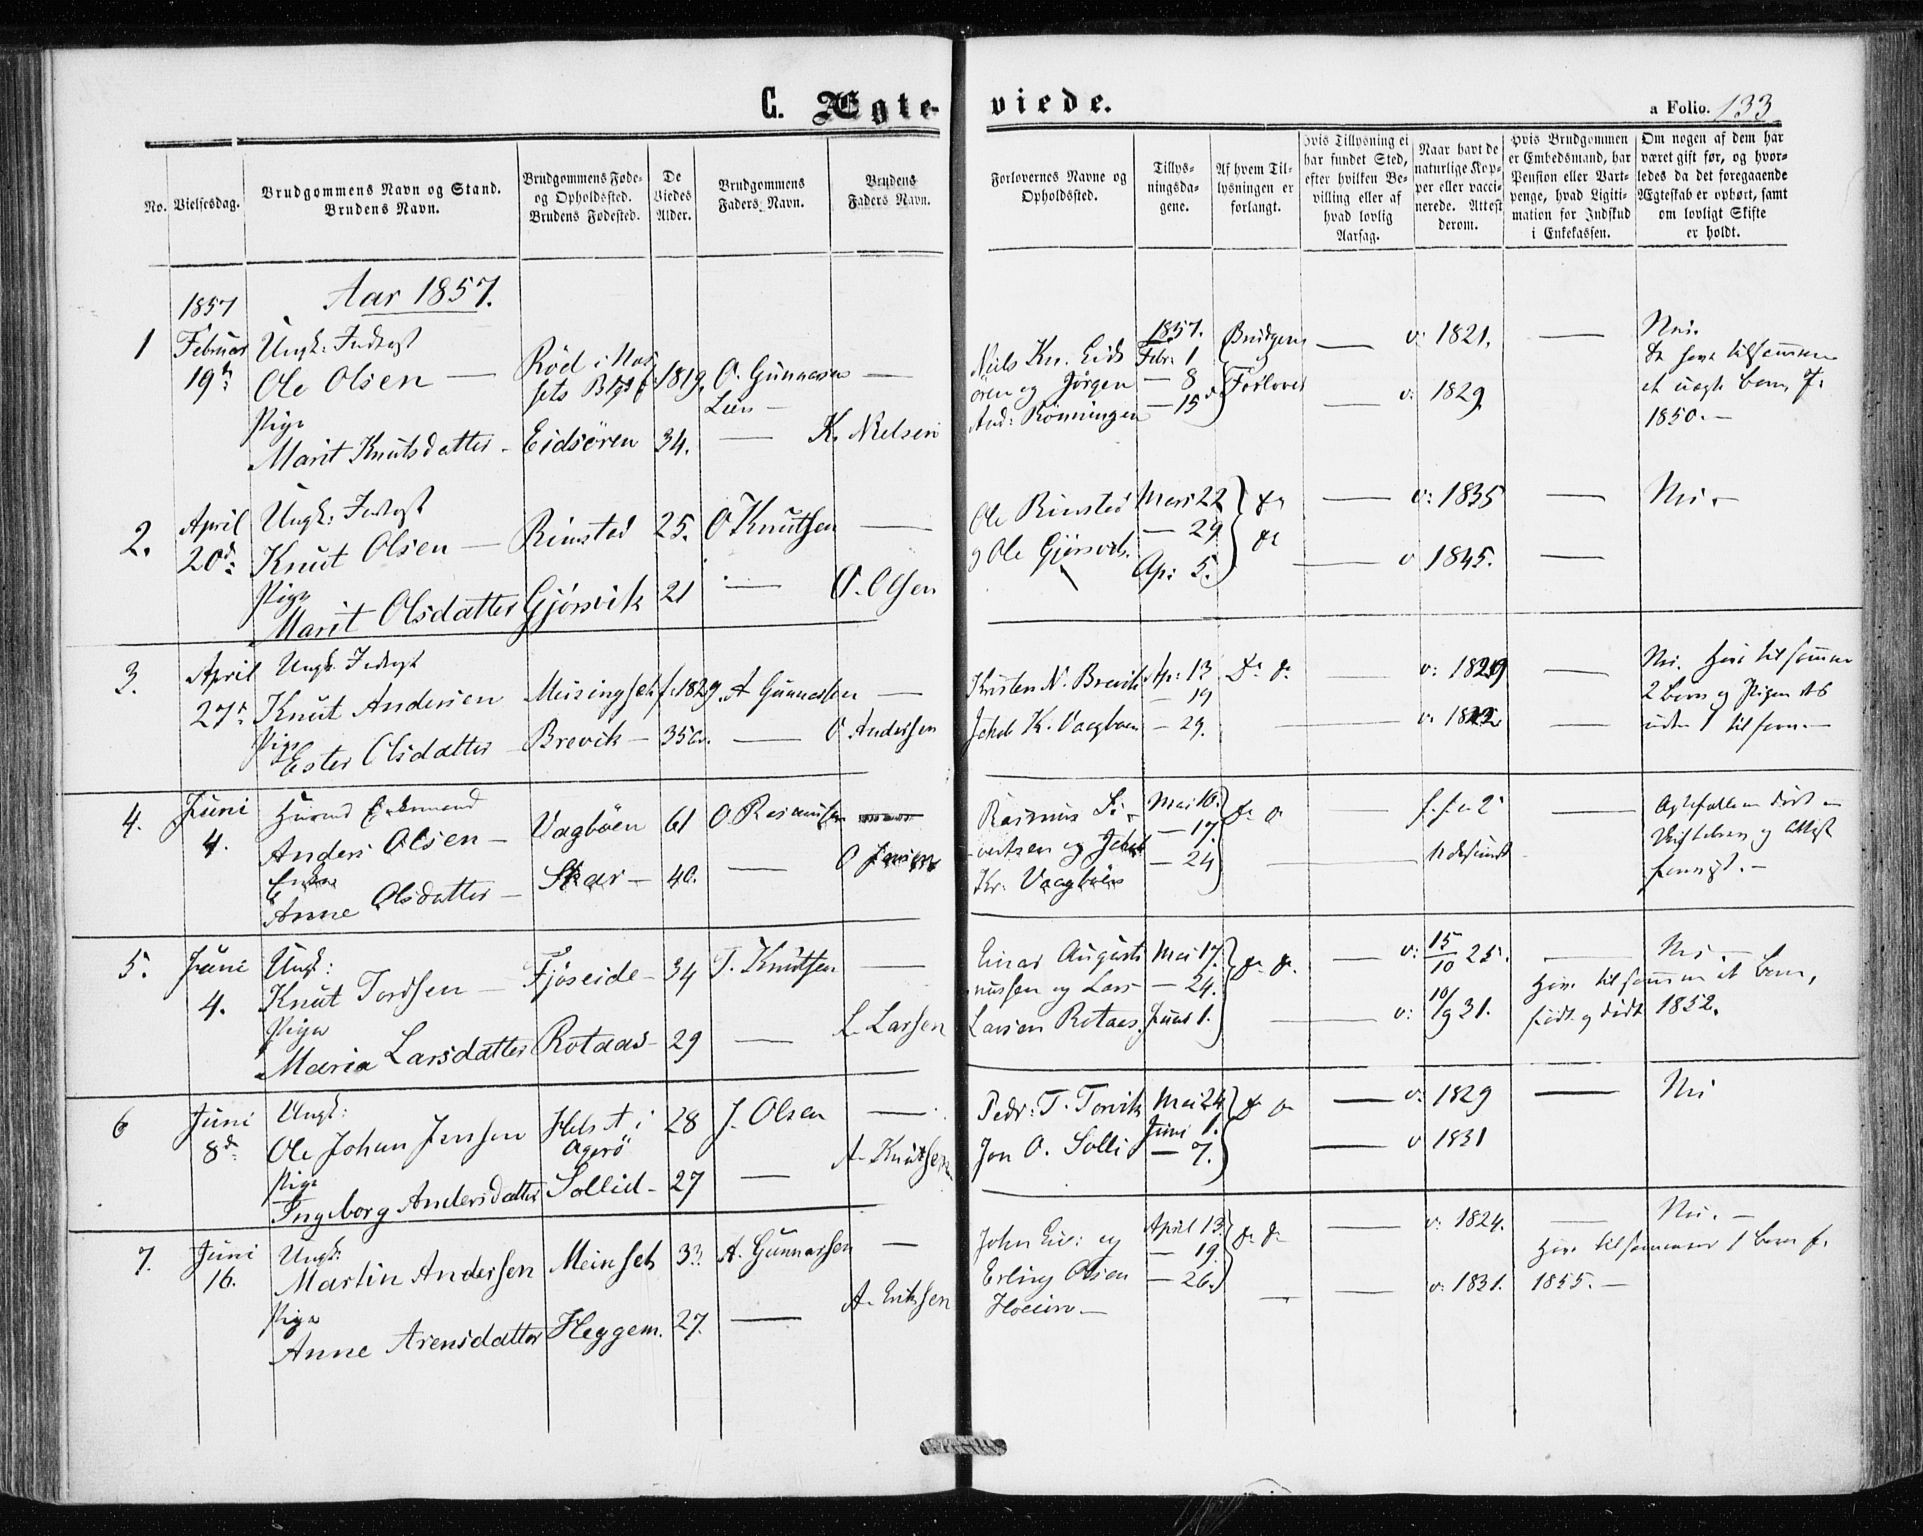 C. Ægte-viede.
a Folio. 133
No.
Vielsesdag.
Brudgommens Navn og Stand.
Brudens Navn.
Brudgommens Føde-
og Opholdssted.
Brudens Fødested.
De
Viedes
Alder.
Brudgommens
Faders Navn.
Brudens
Faders Navn.
Forlovernes Navne og
Opholdssted.
Tillys-
ningsda-
gene.
Af hvem Til-
lysningen er
forlangt.
Hvis Tillysning ei
har fundet Sted,
efter hvilken Be-
villing eller af
hvad lovlig
Aarsag.
Naar havt de
naturlige Kop-
per eller vacci-
nerede. Attest
derom.
Hvis Brudgommen
er Embedsmand, har
Pension eller Vart-
penge, hvad Ligiti-
mation for Indskud
i Enkekassen.
Om nogen af dem har
været gift før, og hvor-
ledes da det foregaaende
Ægteskab er ophørt, samt
om lovligt Skifte
er holdt.
Aar 1857.
1857
1
Februar
19
Ungk:
Ole Olsen —
Pige
Marit Knutsdatter -
Röd i
Eidsören
1819.
34.
O. Gunnarsen
Lien —
—
—
K. Nielsen
Niels Kn. Eids
ören og Jörgen
And: Rönningen
1857.
Febr: 1
— 8
— 15
Brudgom
og
Forlover
—
—
v: 1821.
v: 1829
—
Nei.
et uægte Barn, f.
1850. -
2.
April
20d:
Ungk:
Knut Olsen —
Pige
Marit Olsdatter
Rimsted
Gjörsvik
25.
21
O Knutsen
—
—
O. Olsen
Ole Rimsted
og Ole Gjörsvik.
Mars 22
— 29
Ap: 5.
—
—
v: 1835
v 1845.
—
—
Nei -
3.
April
27
Ungk:
Knut Andersen
Pige
Ester Olsdatter -
Meisingset
Brevik -
f. 1829.
35
A Gunnarsen
—
—
O Andersen
Kristen N. Brevik
K. Vaagboen
Ap: 13
— 19
— 29.
—
v:
v:
—
—
Nei. Have tilsammen
2 Børn og Pigen
uden 1
4.
Juni
4.
Enkemand
Anders Olsen -
Enke
Anne Olsdatter -
Vagböen
Skar -
61
40.
O Rasmusen
—
O
Rasmus Si-
vertsen og
Kr: Vaagböen
Mai 10.
— 17
— 24
—
—
—
5.
Juni
4.
Ungk:
Knut Tordsen —
Pige
Maria Larsdatter
Fjöseide -
Rotaas -
34
29
T. Knutsen
—
—
L Larsen
Einar Augusti
nussen og Lars
Larsen Rotaas.
Mai 17.
— 24.
Juni 1.
—
—
v: 15/10 25.
v: 10/9 31.
—
Nei. -
Have tilsammen et Barn,
født og dødt 1852.
6
Juni
8d:
Ungk:
Ole Johan Jenssen
Pige
Ingeborg Andersdatter
i
Agerö
Sollid -
28
27
J. Olsen
—
—
A. Knutsen
Pedr: T. Torvik
Jon O. Solli
Mai 24
Juni 1.
— 7.
—
—
v: 1829
v 1831
—
Nei
7.
Juni
16.
Ungk:
Martin Andersen
Pige
Anne Arensdatter
Meinset
Heggem.
33
27.
A. Gunnarsen
—
—
A. Eriksen
John og
Erling Olsen
Hoeim. -
April 13.
— 19.
— 26.
—
—
v: 1824.
v: 1831.
—
Nei. -
Have tilsammen 1 Barn f.
1855. -